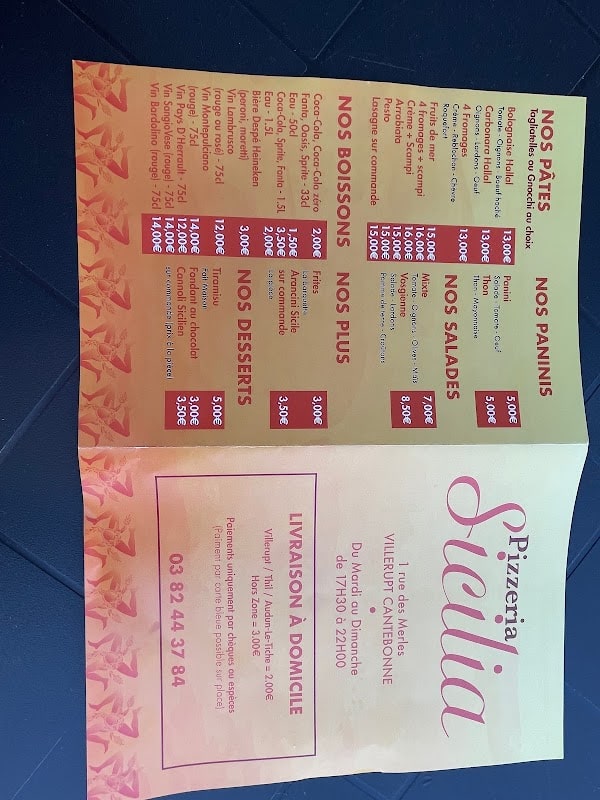 NOS PÂTES
Tagliatelles ou Gnocchi au choix
Bolognaise Hallal 13,00€
Tomate - Oignons - Boeuf haché
Carbonara Hallal 13,00€
Oignons - Lardons - Oeuf
4 Fromages 13,00€
Crème - Reblochon - Chèvre
Roquefort
Fruits de mer 15,00€
4 fromages + scampi 16,00€
Crème + Scampi 16,00€
Arrabiata 15,00€
Pesto 15,00€
Lasagne sur commande 15,00€
NOS BOISSONS
Coca-Cola, Coca-Cola zéro
Fanta, Oasis, Sprite - 33cl 2,00€
Eau - 50cl 1,50€
Coca-Cola, Sprite, Fanta - 1,5L 3,50€
Eau - 1,5L 2,00€
Bière Despé Heineken
(peroni, moretti) 3,00€
Vin Lambrusco
(rouge ou rosé) - 75cl 12,00€
Vin Montepulciano
(rouge) - 75cl 14,00€
Vin Pays D'Herrault - 75cl 12,00€
Vin SangioVese (rouge) - 75cl 14,00€
Vin Bardolino (rouge) - 75cl 14,00€
NOS PANINIS
Panini 5,00€
Salade - Tomate - Oeuf
Thon 5,00€
Thon - Mayonnaise
NOS SALADES
Mixte 7,00€
Tomate - Oignons - Olives - Maïs
Vosgienne 8,50€
Salade - Lardons
Pomme de terre - Croûtons
NOS PLUS
Frites 3,00€
La barquette
Arancini Sicile
sur commande 3,50€
La pièce
NOS DESSERTS
Tiramisu 5,00€
Fait Maison
Fondant au chocolat 3,00€
Cannoli Sicilien 3,50€
sur commande (prix à la pièce)
Pizzeria
Sicilia
1 rue des Merles
VILLERUPT CANTEBONNE
Du Mardi au Dimanche
de 17H30 à 22H00
LIVRAISON À DOMICILE
Villerupt / Thil / Audun-Le-Tiche = 2.00€
Hors Zone = 3.00€
Paiements uniquement par chèques ou espèces
(Paiment par carte bleue possible sur place)
03 82 44 37 84